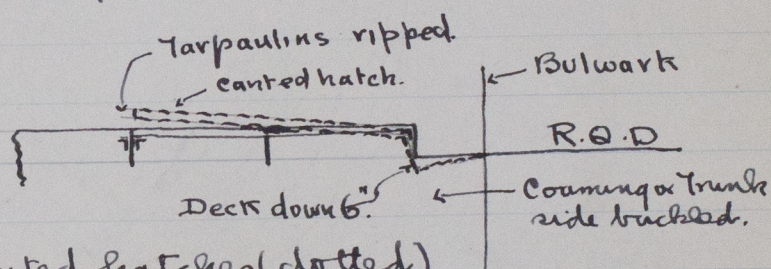 Tarpaulins ripped.
canted hatch.
Bulwark
R.Q.D
Deck down 6".
Coaming or Trunk
side buckled.
dotted)